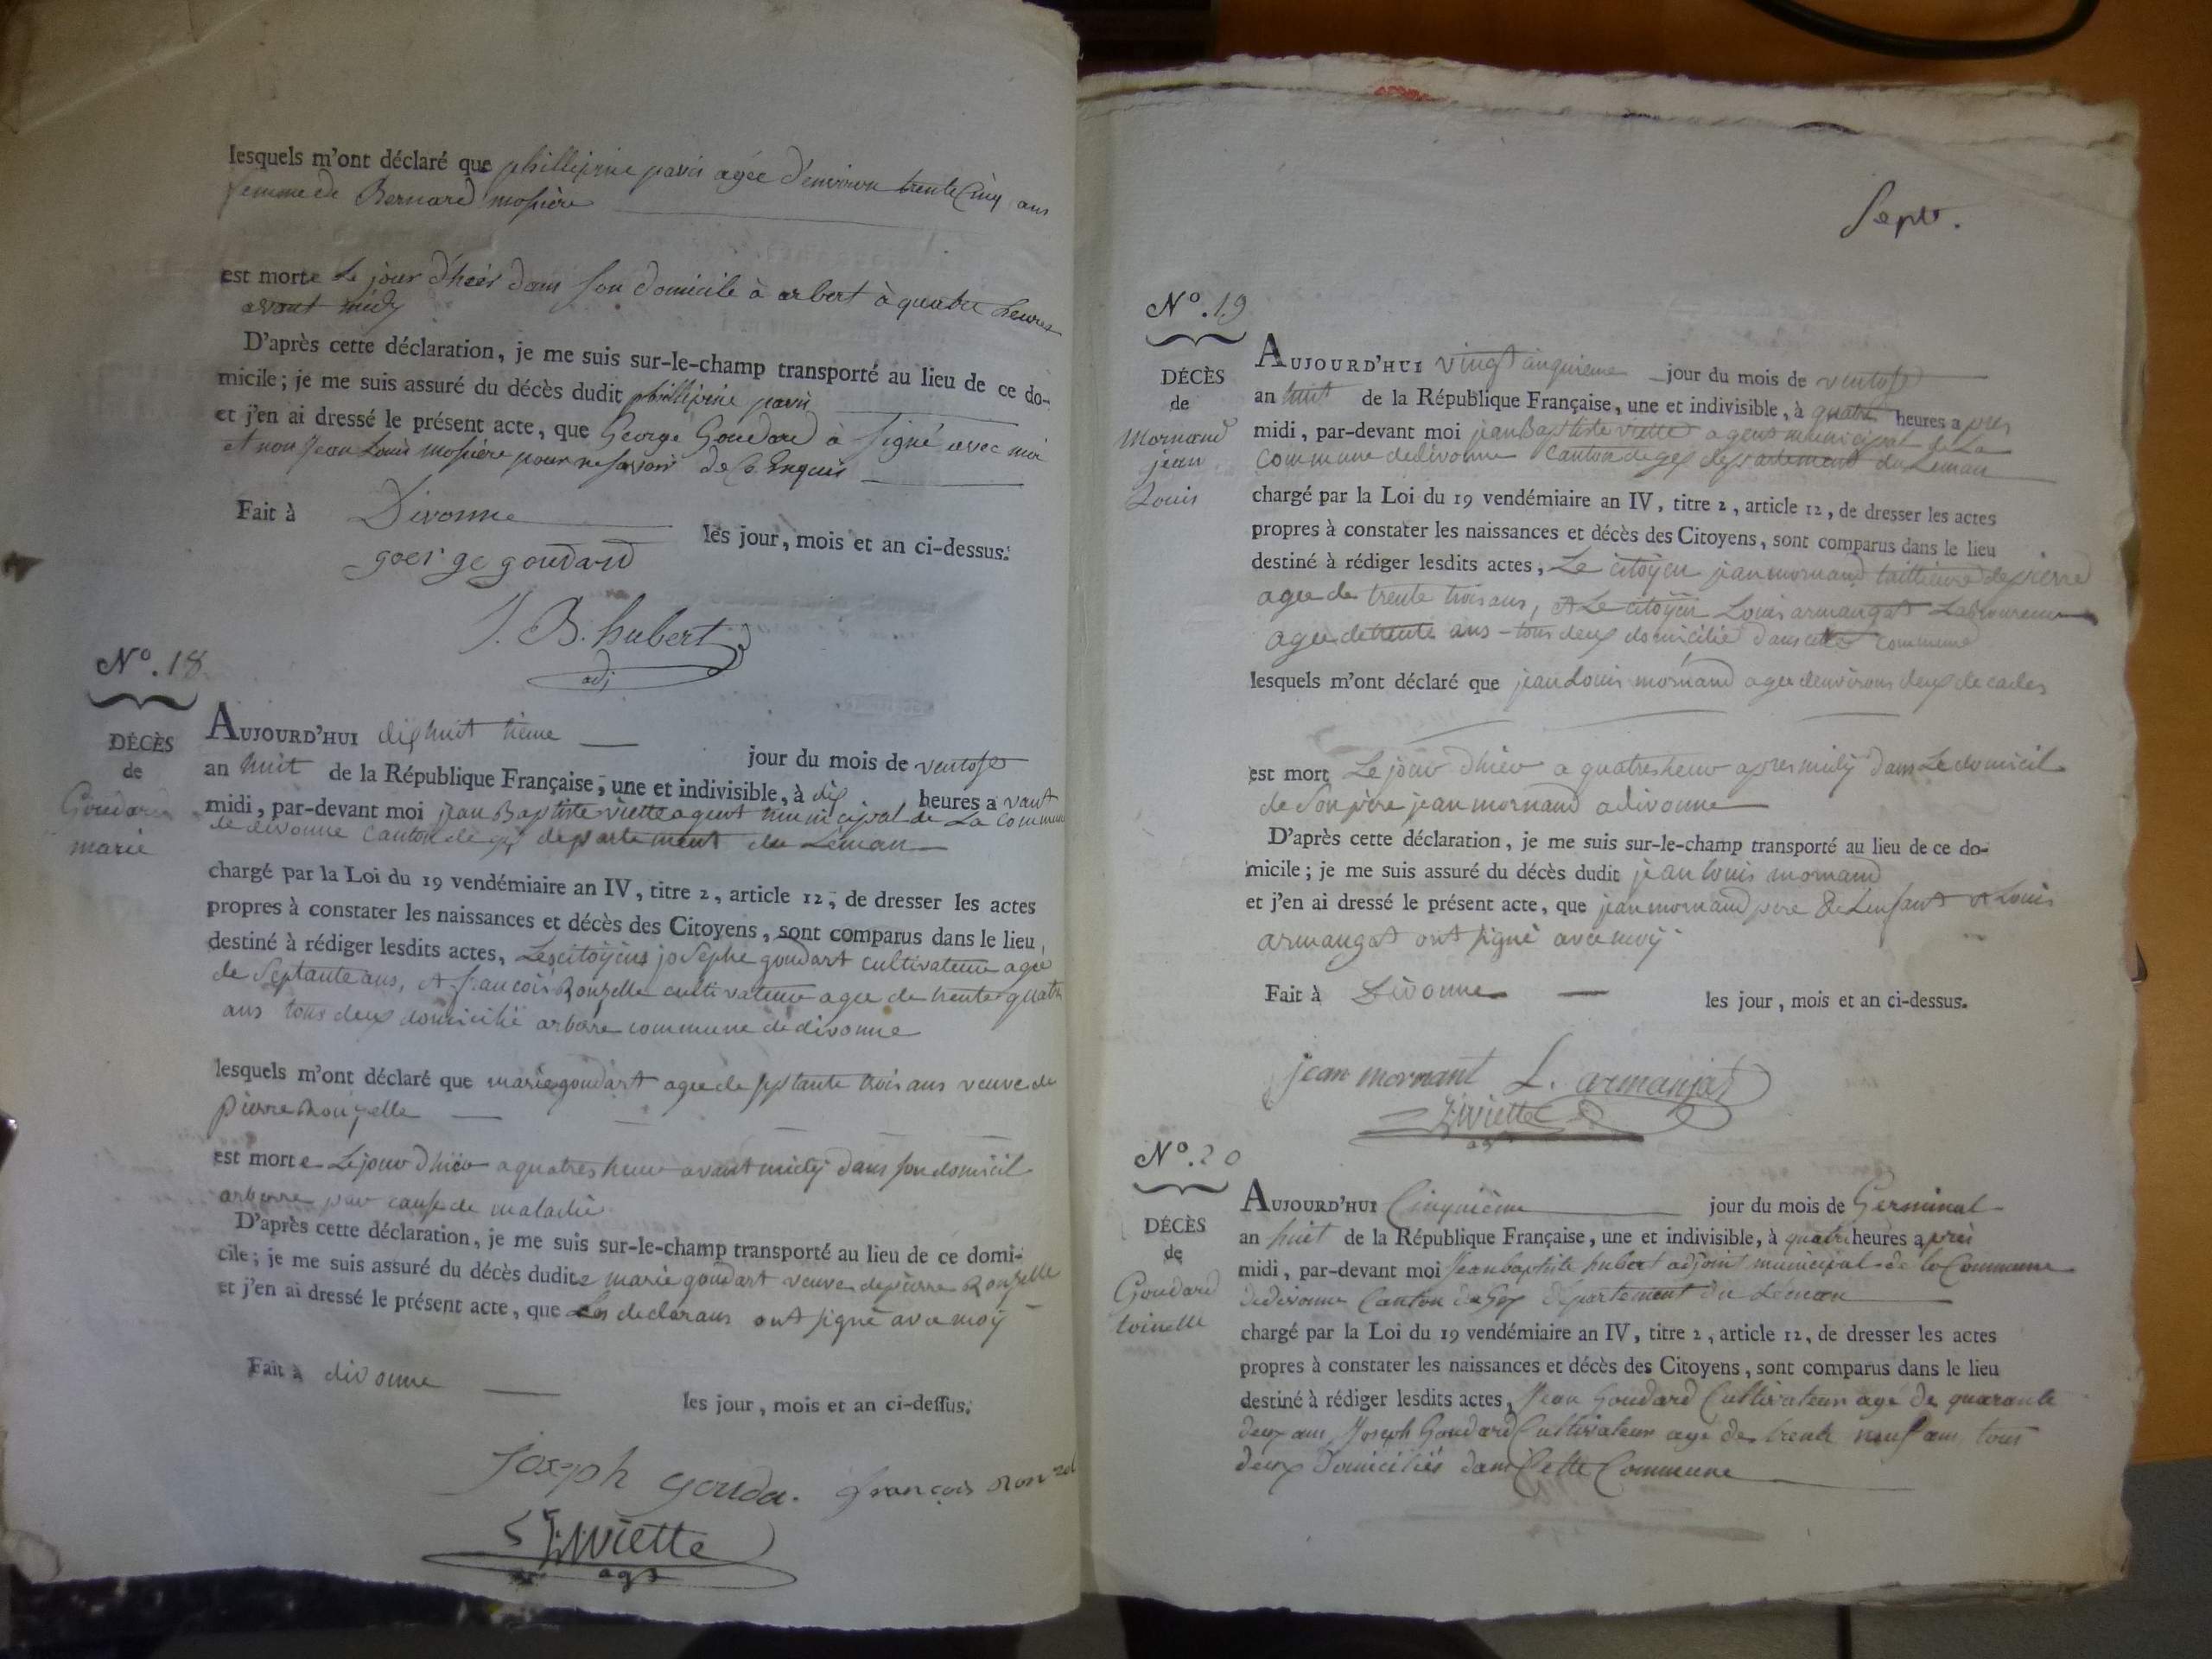 lesquels m'ont déclaré que phillipine paris agée d'environ trente Cinq ans
femme de Bernard mossière
est morte Le jour d'hier dans son domicile à arbert à quatre heures
avant midy
D'après cette déclaration, je me suis sur-le-champ transporté au lieu de ce do-
micile; je me suis assuré du décès dudit phillipine paris
et j'en ai dressé le présent acte, que George Goudard à signé avec moi
et non Jean Louis mossière pour ne savoir de ce Enquis
Fait à Divonne les jour, mois et an ci-dessus.
goerge goudard
J. B. hubert
adj
N°. 18
DÉCÈS
de
Goudard
marie
AUJOURD'HUI dix huit tieme jour du mois de ventose
an huit de la République Française, une et indivisible, à dix heures avant
midi, par-devant moi jean Baptiste viette agent municipal de La commune
de divonne canton de gex departement du Leman
chargé par la Loi du 19 vendémiaire an IV, titre 2, article 12, de dresser les actes
propres à constater les naissances et décès des Citoyens, sont comparus dans le lieu
destiné à rédiger lesdits actes, Les citoÿens joSephe goudart cultivateur agée
de Septante ans, et francois Rouzelle cultivateur agee de trente quatre
ans tous deux domicilié arbere commune de divonne
lesquels m'ont déclaré que marie goudart agee de septante trois ans veuve de
pierre Rouzelle
est morte Le jour d'hier a quatres heur avant midÿ dans son domicil
arberre par cause de maladie
D'après cette déclaration, je me suis sur-le-champ transporté au lieu de ce domi-
cile; je me suis assuré du décès dudite marie goudart veuve de pierre Rouzelle
et j'en ai dressé le présent acte, que Les declarans ont signé avec moÿ
Fait à divonne les jour, mois et an ci-dessus.
Joseph Gouda. françois Ronzel
J.viette
agt
Sept.
N°. 19
DÉCÈS
de
Mornand
jean
Louis
AUJOURD'HUI vingt cinquieme jour du mois de ventose
an huit de la République Française, une et indivisible, à quatre heures apres
midi, par-devant moi jean Baptiste viette agent municipal de La
commune de divonne canton de gex departement du Leman
chargé par la Loi du 19 vendémiaire an IV, titre 2, article 12, de dresser les actes
propres à constater les naissances et décès des Citoyens, sont comparus dans le lieu
destiné à rédiger lesdits actes, Le citoÿen jean mornand taillieur de pierre
agee de trente trois ans, et Le citoÿen Louis armangat Laboureur
agee de trente ans tous deux domicilié dans cette commune
lesquels m'ont déclaré que jean Louis mornand agee denvirons deux decades
est mort Le jour d'hier a quatres heur apres midÿ dans Le domicil
de Son père jean mornand a divonne
D'après cette déclaration, je me suis sur-le-champ transporté au lieu de ce do-
micile; je me suis assuré du décès dudit jean louis mornand
et j'en ai dressé le présent acte, que jean mornand pere de Lenfant et Louis
armangat ont signé avec moÿ
Fait à Divonne les jour, mois et an ci-dessus.
jean mornant L. armanjat
J.viette
agt
N°. 20
DÉCÈS
de
Goudard
toinette
AUJOURD'HUI Cinquième jour du mois de Germinal
an huit de la République Française, une et indivisible, à quatre heures après
midi, par-devant moi Jean baptiste hubert adjoint municipal de la Commune
de divonne Canton de Gex département du Léman
chargé par la Loi du 19 vendémiaire an IV, titre 2, article 12, de dresser les actes
propres à constater les naissances et décès des Citoyens, sont comparus dans le lieu
destiné à rédiger lesdits actes, Jean Goudard Cultivateur agé de quarante
deux ans Joseph Goudard Cultivateur agé de trente neuf ans tous
deux Domiciliés dans Cette Commune